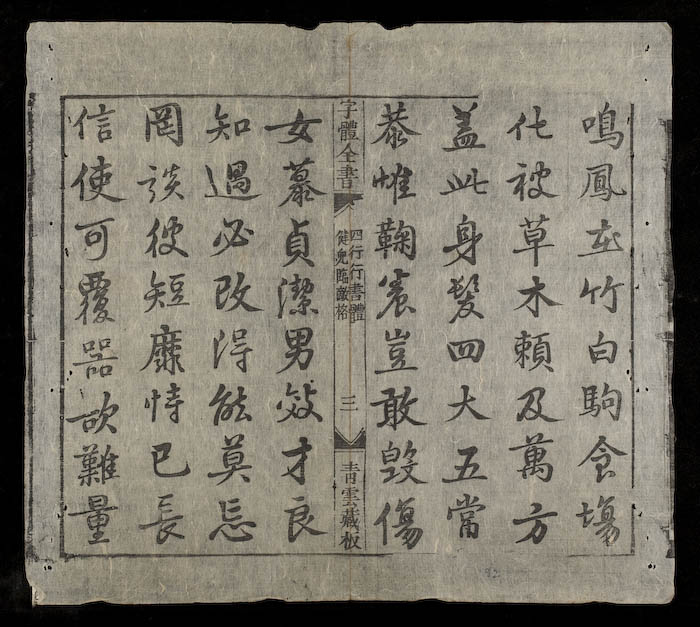 鳴鳳在竹白駒食塲
化被草木賴及萬方
盖此身髮四大五常
恭惟鞠養豈敢毀傷
字體全書
四行行書體
健兒臨敵格
三
青雲藏板
女慕貞潔男效才良
知過必改得能莫忘
罔談彼短靡恃己長
信使可覆器欲難量